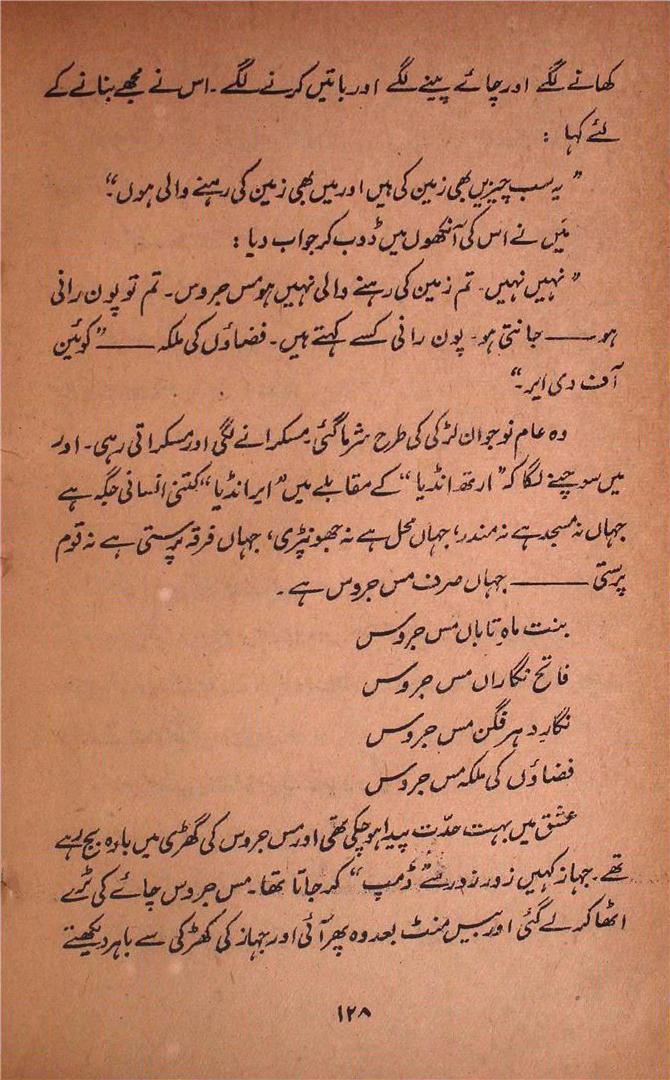 کھانے لگے اور چائے پینے لگے اور باتیں کرنے لگے ۔ اس نے مجھے بنانے کے
لئے کہا :
” یہ سب چیزیں بھی زمین کی ہیں اور میں بھی زمین کی رہنے والی ہوں ۔“
میں نے اس کی آنکھوں میں ڈوب کر جواب دیا :
” نہیں نہیں۔ تم زمین کی رہنے والی نہیں ہو مس جروس ۔ تم تو پون رانی
ہو —— جانتی ہو۔ پون رانی کسے کہتے ہیں ۔ فضاؤں کی ملکہ —— ” کوئین
آف دی ایر ۔“
وہ عام نوجوان لڑکی کی طرح شرما گئی۔ مسکرانے لگی اور مسکراتی رہی ۔ اور
میں سوچنے لگا کہ ” ارتھ انڈیا “ کے مقابلے میں ” ایر انڈیا “ کتنی انسانی جگہ ہے
جہاں نہ مسجد ہے نہ مندر، جہاں محل ہے نہ جھونپڑی، جہاں فرقہ پرستی ہے نہ قوم
پرستی —— جہاں صرف مس جروس ہے ۔
بنت ماہِ تاباں مس جروس
فاتح نگاراں مس جروس
نگارِ دہر فگن مس جروس
فضاؤں کی ملکہ مس جروس
عشق میں بہت حدّت پیدا ہو چکی تھی اور مس جروس کی گھڑی میں بارہ بج رہے
تھے ۔ جہاز کہیں زور زور سے ” ڈمپ “ کر جاتا تھا ۔ مس جروس چائے کی ٹرے
اٹھا کر لے گئی اور بیس منٹ بعد وہ پھر آئی اور جہاز کی کھڑکی سے باہر دیکھتے
۱۲۸